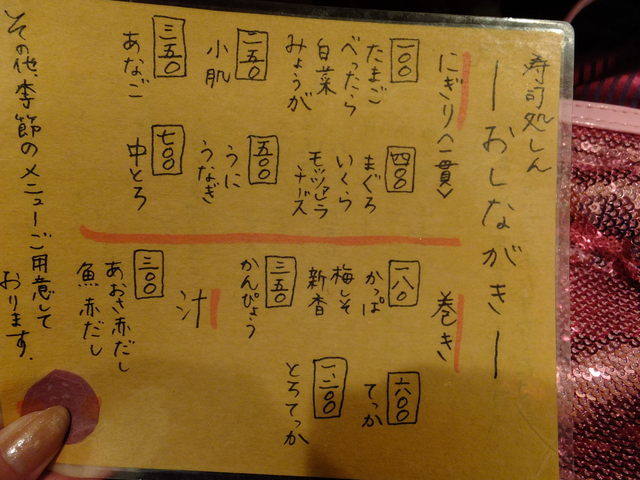 寿司処しん
ーおしながきー
にぎり〈一貫〉
一〇〇
たまご
べったら
白菜
みょうが
二五〇
小肌
三五〇
あなご
四〇〇
まぐろ
いくら
モッツァレラ
チーズ
五〇〇
うに
うなぎ
七〇〇
中とろ
巻き
一八〇
かっぱ
梅しそ
新香
三五〇
かんぴょう
六〇〇
てっか
一、二〇〇
とろてっか
汁
三〇〇
あおさ赤だし
魚赤だし
その他、季節のメニューご用意して
おります.